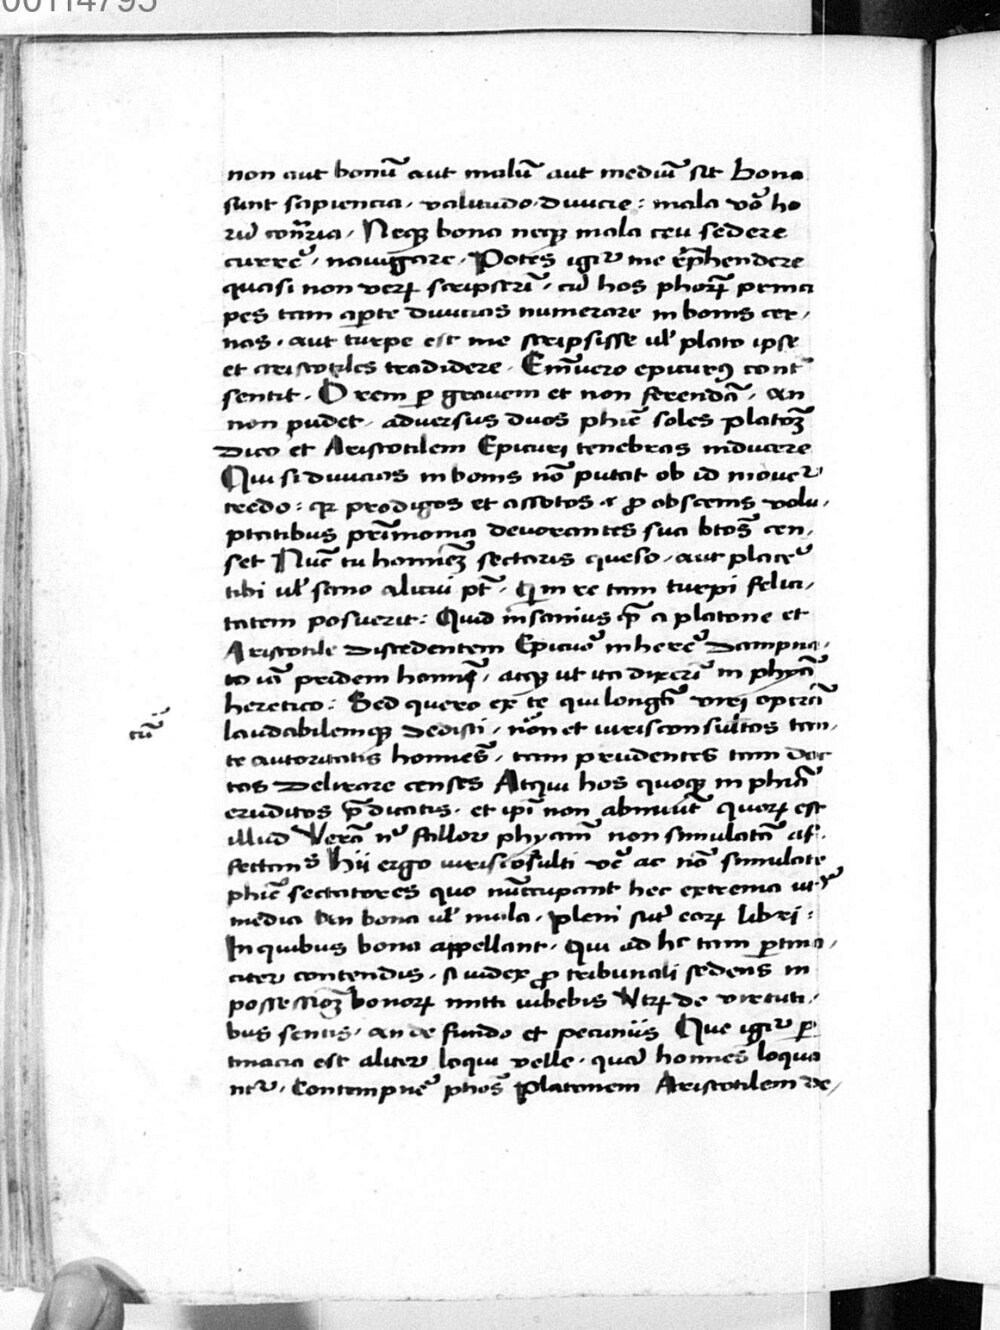 00114795
non aut bonū aut malū aut mediū sit Bona
sunt sapiencia, valitudo, diuicie: mala vo᷑ ho
rū contr̄ria, Neqꝫ bona neqꝫ mala ceu sedere
curre᷑, nauigare, Potes igiᷣ me rep̄hendere
quasi non veꝝ scripserī, cū hos phoꝝ prīnci
pes tam aꝑte diuicias numerare in bonis cer,
nas, aut turpe est me scripsisse ul̕ plato ipse
et aristotiles tradidere, Em̄uero epicurꝰ cont̄
sentit, O rem ꝑ grauem et non ferendā, An
non pudet, adversus duos phīe soles platōꝫ
Dico et Aristotilem Epicuri tenebras inducere
Qui si diuicias in bonis nō putat ob id moueᷣ
credo: qꝛ prodigos et assotos & ꝓ obscenis volu,
ptatibus prīmonia deuorantes sua btōs cen,
set Nūc tu hominēꝫ sectaris queso, aut placeᷣ
tibi ul̕ sano alicui pt̄, Qꝙ in re tam turpi felici,
tatem posuerit: Quid insanius qꝫ̄ a platone et
Aristotile discedentem Epicuro᷑ inhere᷑ dampna,
to iā pridem homīe, atqꝫ ut ita dixerī in phyā
heretico: Sed quero ex te qui longā viri operā
cū̄
laudabilemqꝫ dedisti, nōn et iurisconsultos tan,
te autoritatis homines, tam prudentes tam doc
tos delirare censes Atqui hos quoqꝫ in phīa
eruditos p̄dicatis, et ip̄i non abnuūt quoꝝ est
illud Verā nᷣ fallor phyām non simulatā af,
fectans Hii ergo iuriscōsulti ve᷑ ac nō simulate
phīe sectatores quo nūccupant hec extrema utᷣ
media an bona ul̕ mala, pleni sūt eoꝝ libri:
In quibus bona appellant, Qui ad hc̄ tam ꝑtina,
citer contendis, si iudex ꝓ tribunali sedens in
possessiōꝫ bonoꝝ mitti iubebis Utꝝ de virtuti,
bus sentis, an de fundo et pecuniis Que igiᷣ ꝑ
tinacia est aliter loqui velle, quā homīes loqua
ntᷣ, Contempne᷑ phōs Platonem Aristotilem de,